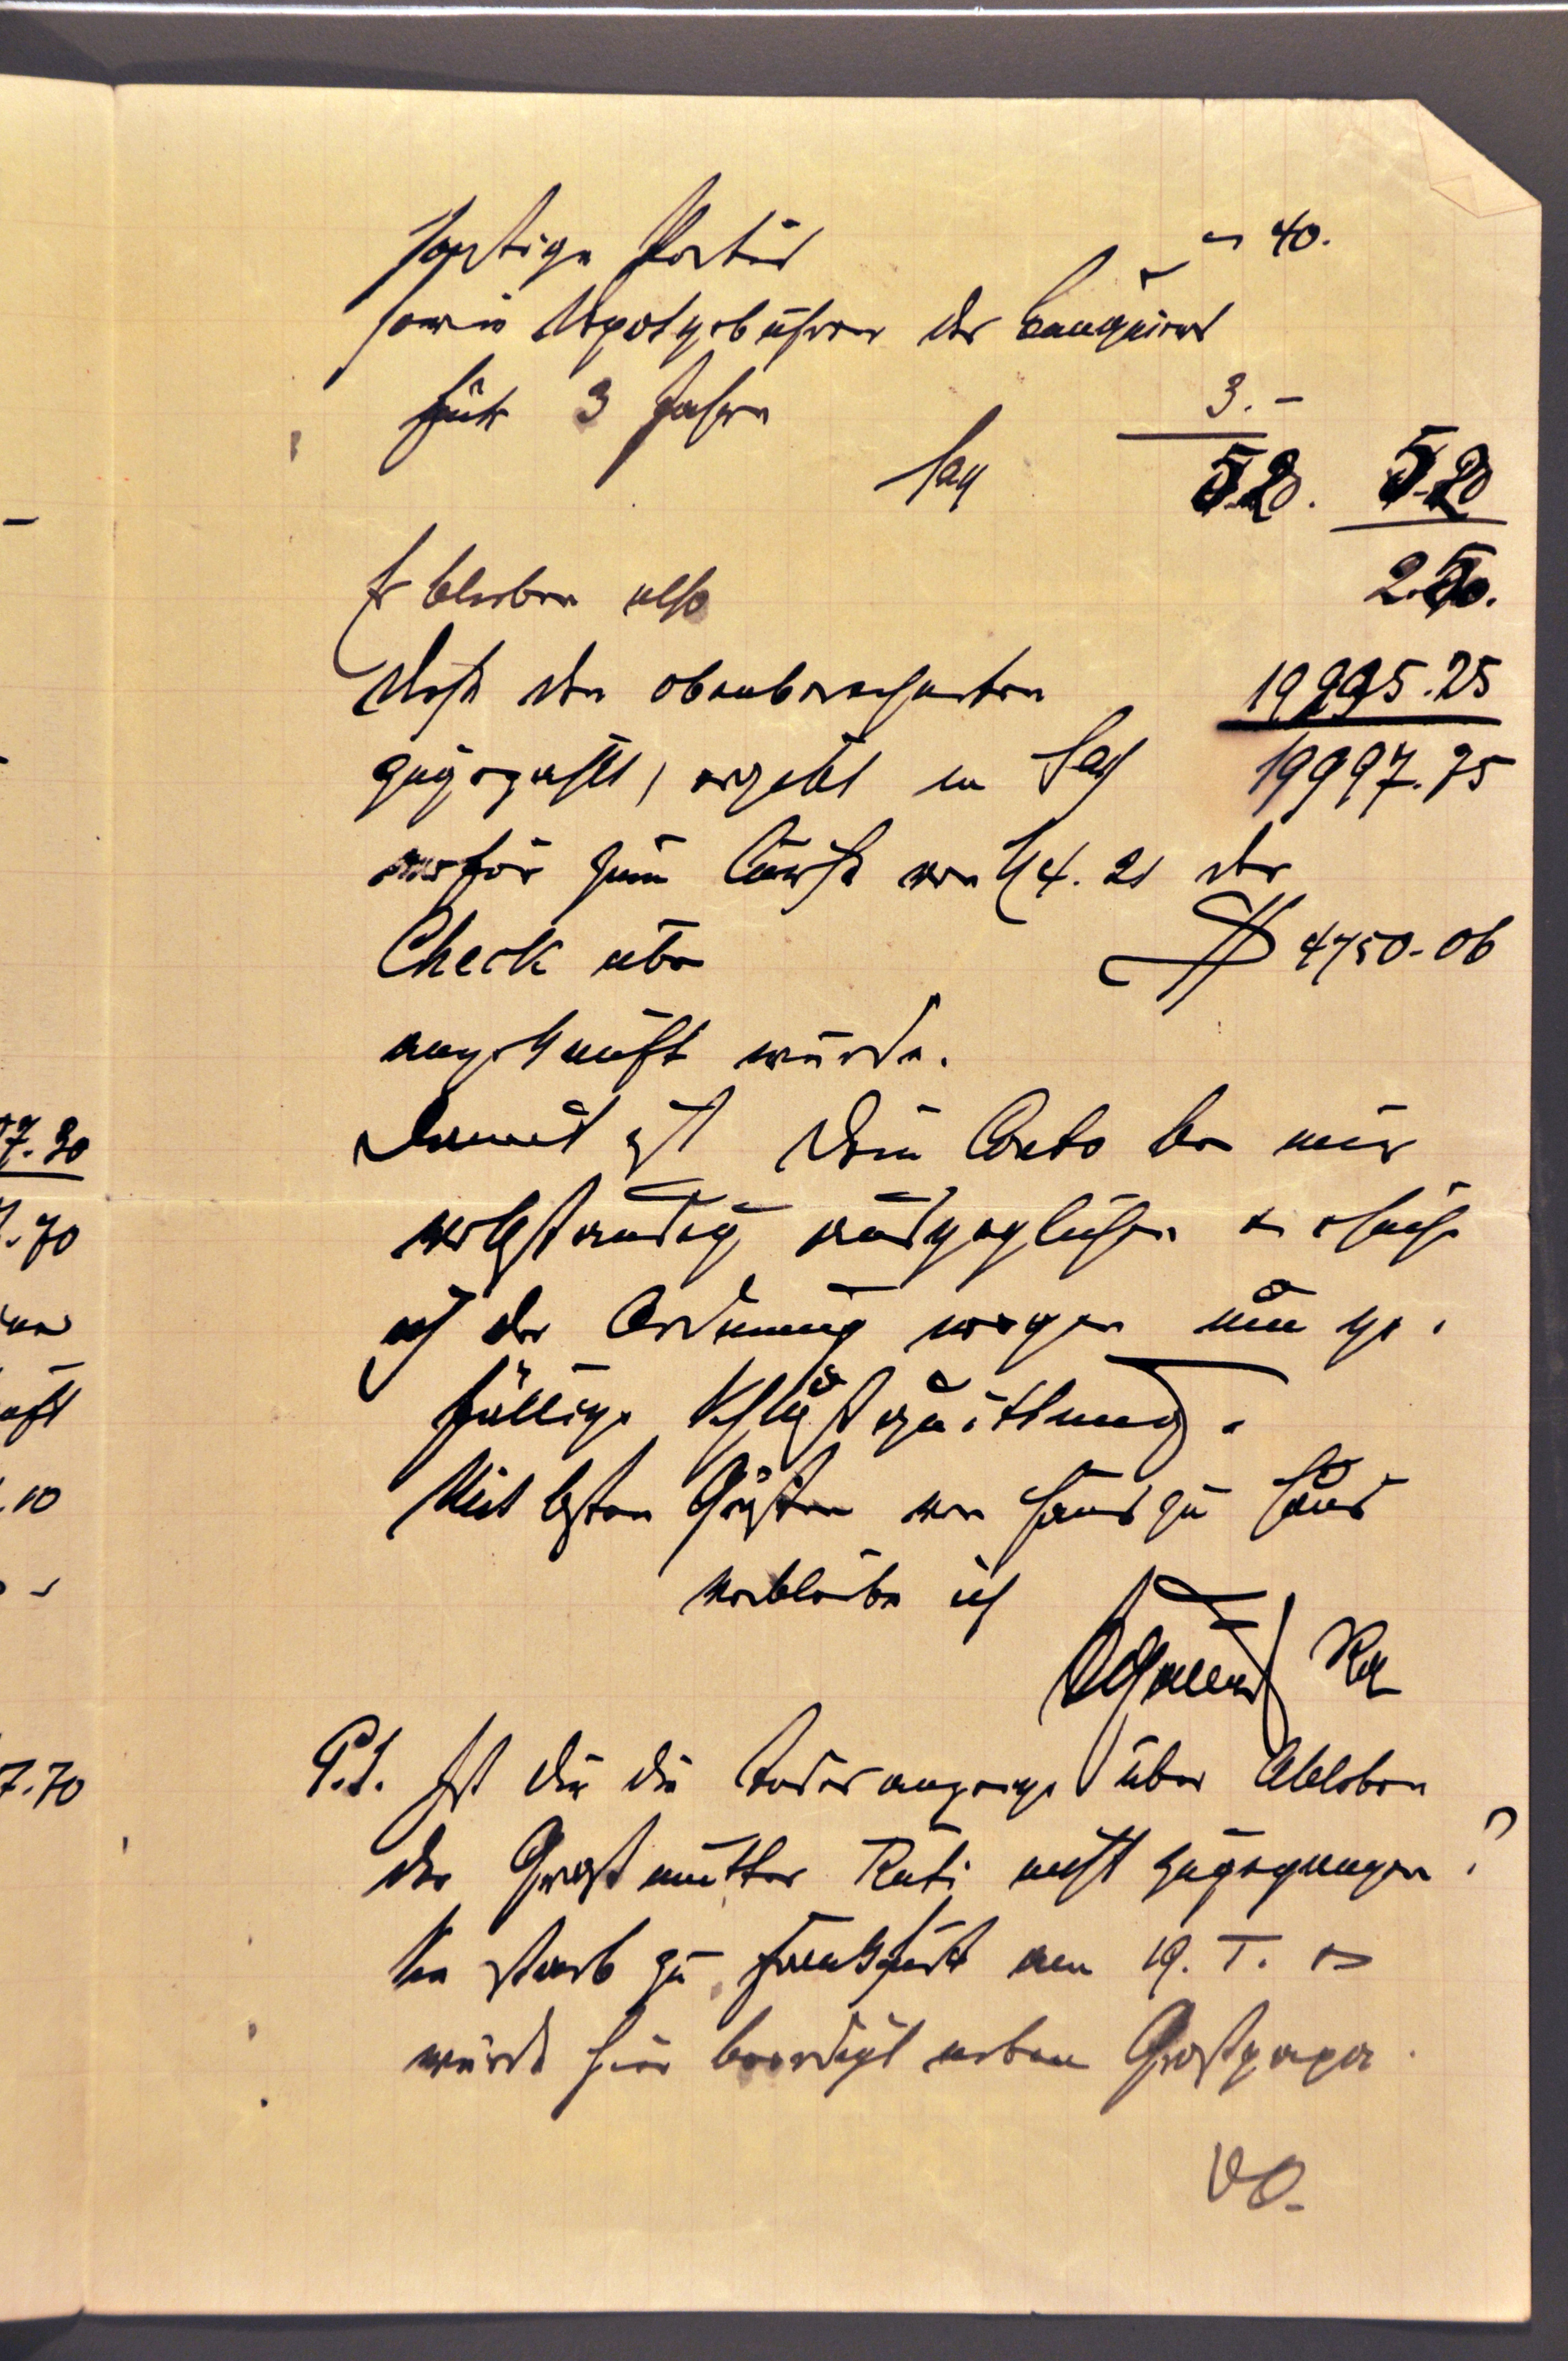 sonstige Portis " " 40.
sowie Depotgebühren des Banquiers
für 3 Jahre 3.-
5.20. 5.20
Es bleiben also 2.50.
diese den obenberechneten 19995.25
zugezählt, ergibt 19997.75
wofür zum Course von 4.21 der
Check über $ 4750.06
angekauft wurde.
Damit ist Dein Conto bei mir
vollständig ausgeglichen & ersuche
ich der Ordnung wegen um ge-
fällige Schlußquittung.
Mit besten Grüßen von Haus zu Haus
verbleibe ich
P.S. Ist Dir die Todesanzeige über Ableben
der Großmutter nicht zugegangen?
Sie starb zu Frankfurt am 19. I. &
wurde hier beerdigt neben Großpapa.